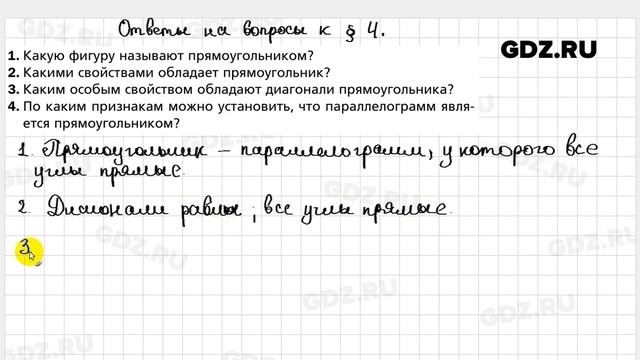 Ответы на вопросы к § 4.
GDZ.RU
1. Какую фигуру называют прямоугольником?
2. Какими свойствами обладает прямоугольник?
3. Каким особым свойством обладают диагонали прямоугольника?
4. По каким признакам можно установить, что параллелограмм явля-
ется прямоугольником?
1. Прямоугольник – параллелограмм, у которого все
углы прямые.
2. Диагонали равны; все углы прямые.
3.